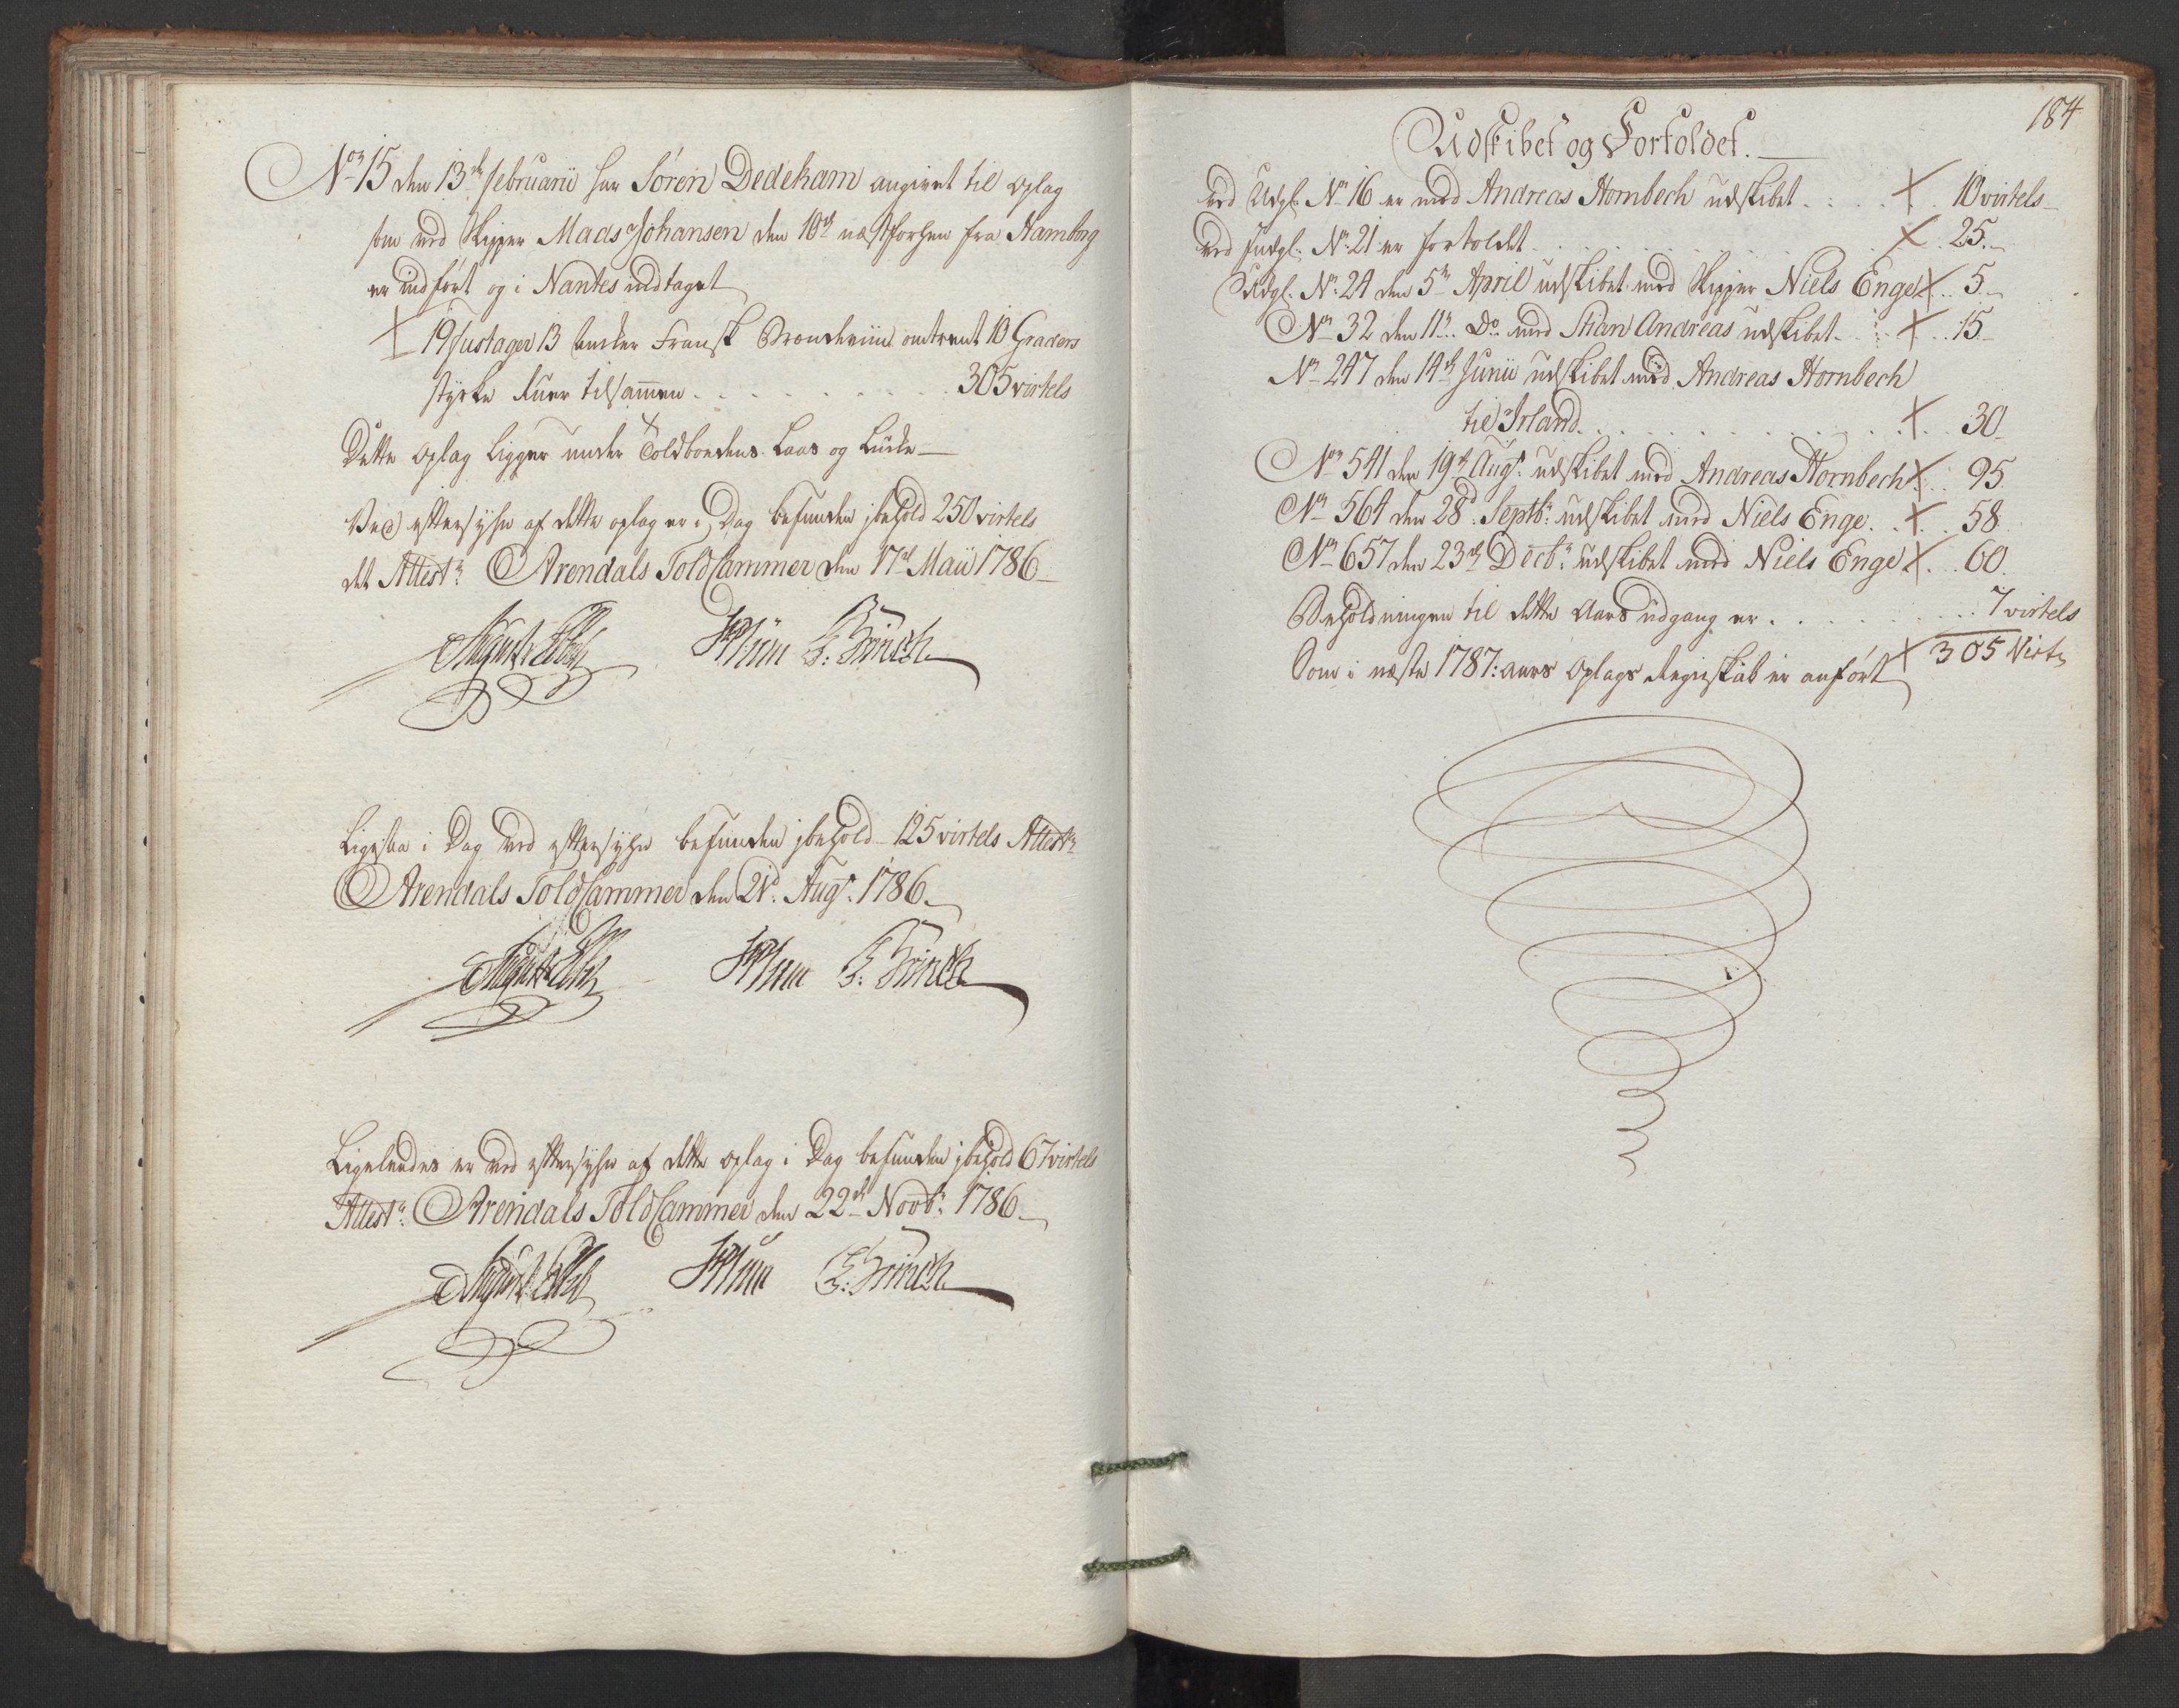 No 15 den 13de februarii har Sören Dedekam angivet til oplag
som med Skipper Mads Johansen den 10de næstforhen fra Hamborg
er indfört og i Nantes indtaget
19 fustager 13 Ancker Fransk Brændeviin omtrent 10 Graders
styrke Kuer tilsammen . . . 305 virtels
Dette oplag ligger under Toldboedens Laas og Lucke
Ved eftersyhn af dette oplag er i Dag befunden jbehold 250 virtels
det Attestr Arendals ToldCammer den 17de Maii 1786
August Ebbe HPlüm E: Brinch
Ligesaa i Dag ved eftersyhn befunden jbehold 125 virtels Attestr
Arendals ToldCammer den 21d: Augt: 1786
August Ebbe HPlum E: Brinch
Ligeledes er ved eftersyhn af dette oplag i Dag befunden jbehold 67 virtels
Attestr: Arendals ToldCammer den 22de Novbr: 1786
August Ebbe HPlum E: Brinch
184
Udskibet og Fortoldet.
ved Udgl: No 16 er med Andreas Hornbech udskibet . . . 10 virtels
ved Indgl: No 21 er fortoldet . . . 25
Udgl: No 24 den 5te April udskibet med Skipper Niels Enge . . 5
No 32 den 11te Do med Stian Andreas udskibet . . . 15
No 247 den 14de Junii udskibet med Andreas Hornbech
til Irland . . . 30
No 541 den 19de Augt: udskibet med Andreas Hornbech . . 95
No 564 den 28d: Septbr: udskibet med Niels Enge . . 58
No 657 den 23de Decbr: udskibet med Niels Enge . . 60
Beholdningen til dette Aars udgang er . . . 7 virtels
305 Virt
Som i næste 1787: aars Oplags Regnskab er anfört